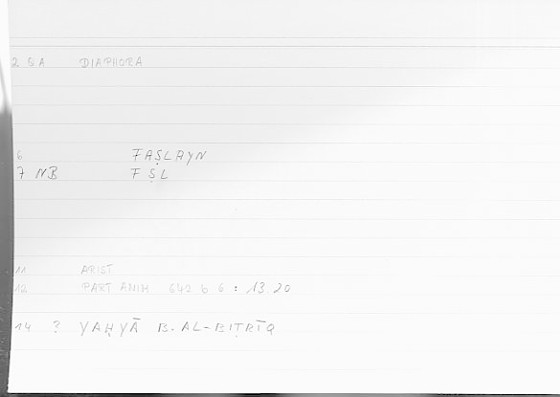 2 GA DIAPHORA
6 FAṢLAYN
7 NB FṢL
11 ARIST
12 PART ANIM 642 b 6 : 13.20
14 ? YAḤYĀ B. AL-BIṬRĪQ